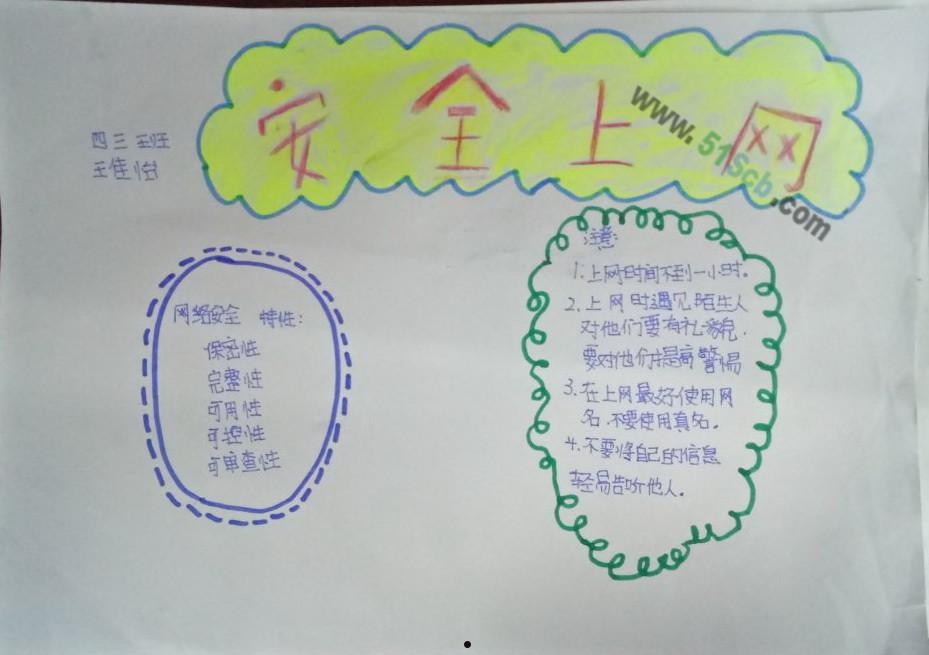 安全上网
www.51Scb.com
四三班
王佳怡
网络安全 特性：
保密性
完整性
可用性
可控性
可审查性
注意：
1.上网时间不到一小时。
2.上网时遇见陌生人
对他们要有礼貌.
要对他们提高警惕
3.在上网最好使用网
名.不要使用真名。
4.不要将自己的信息
轻易告听他人.